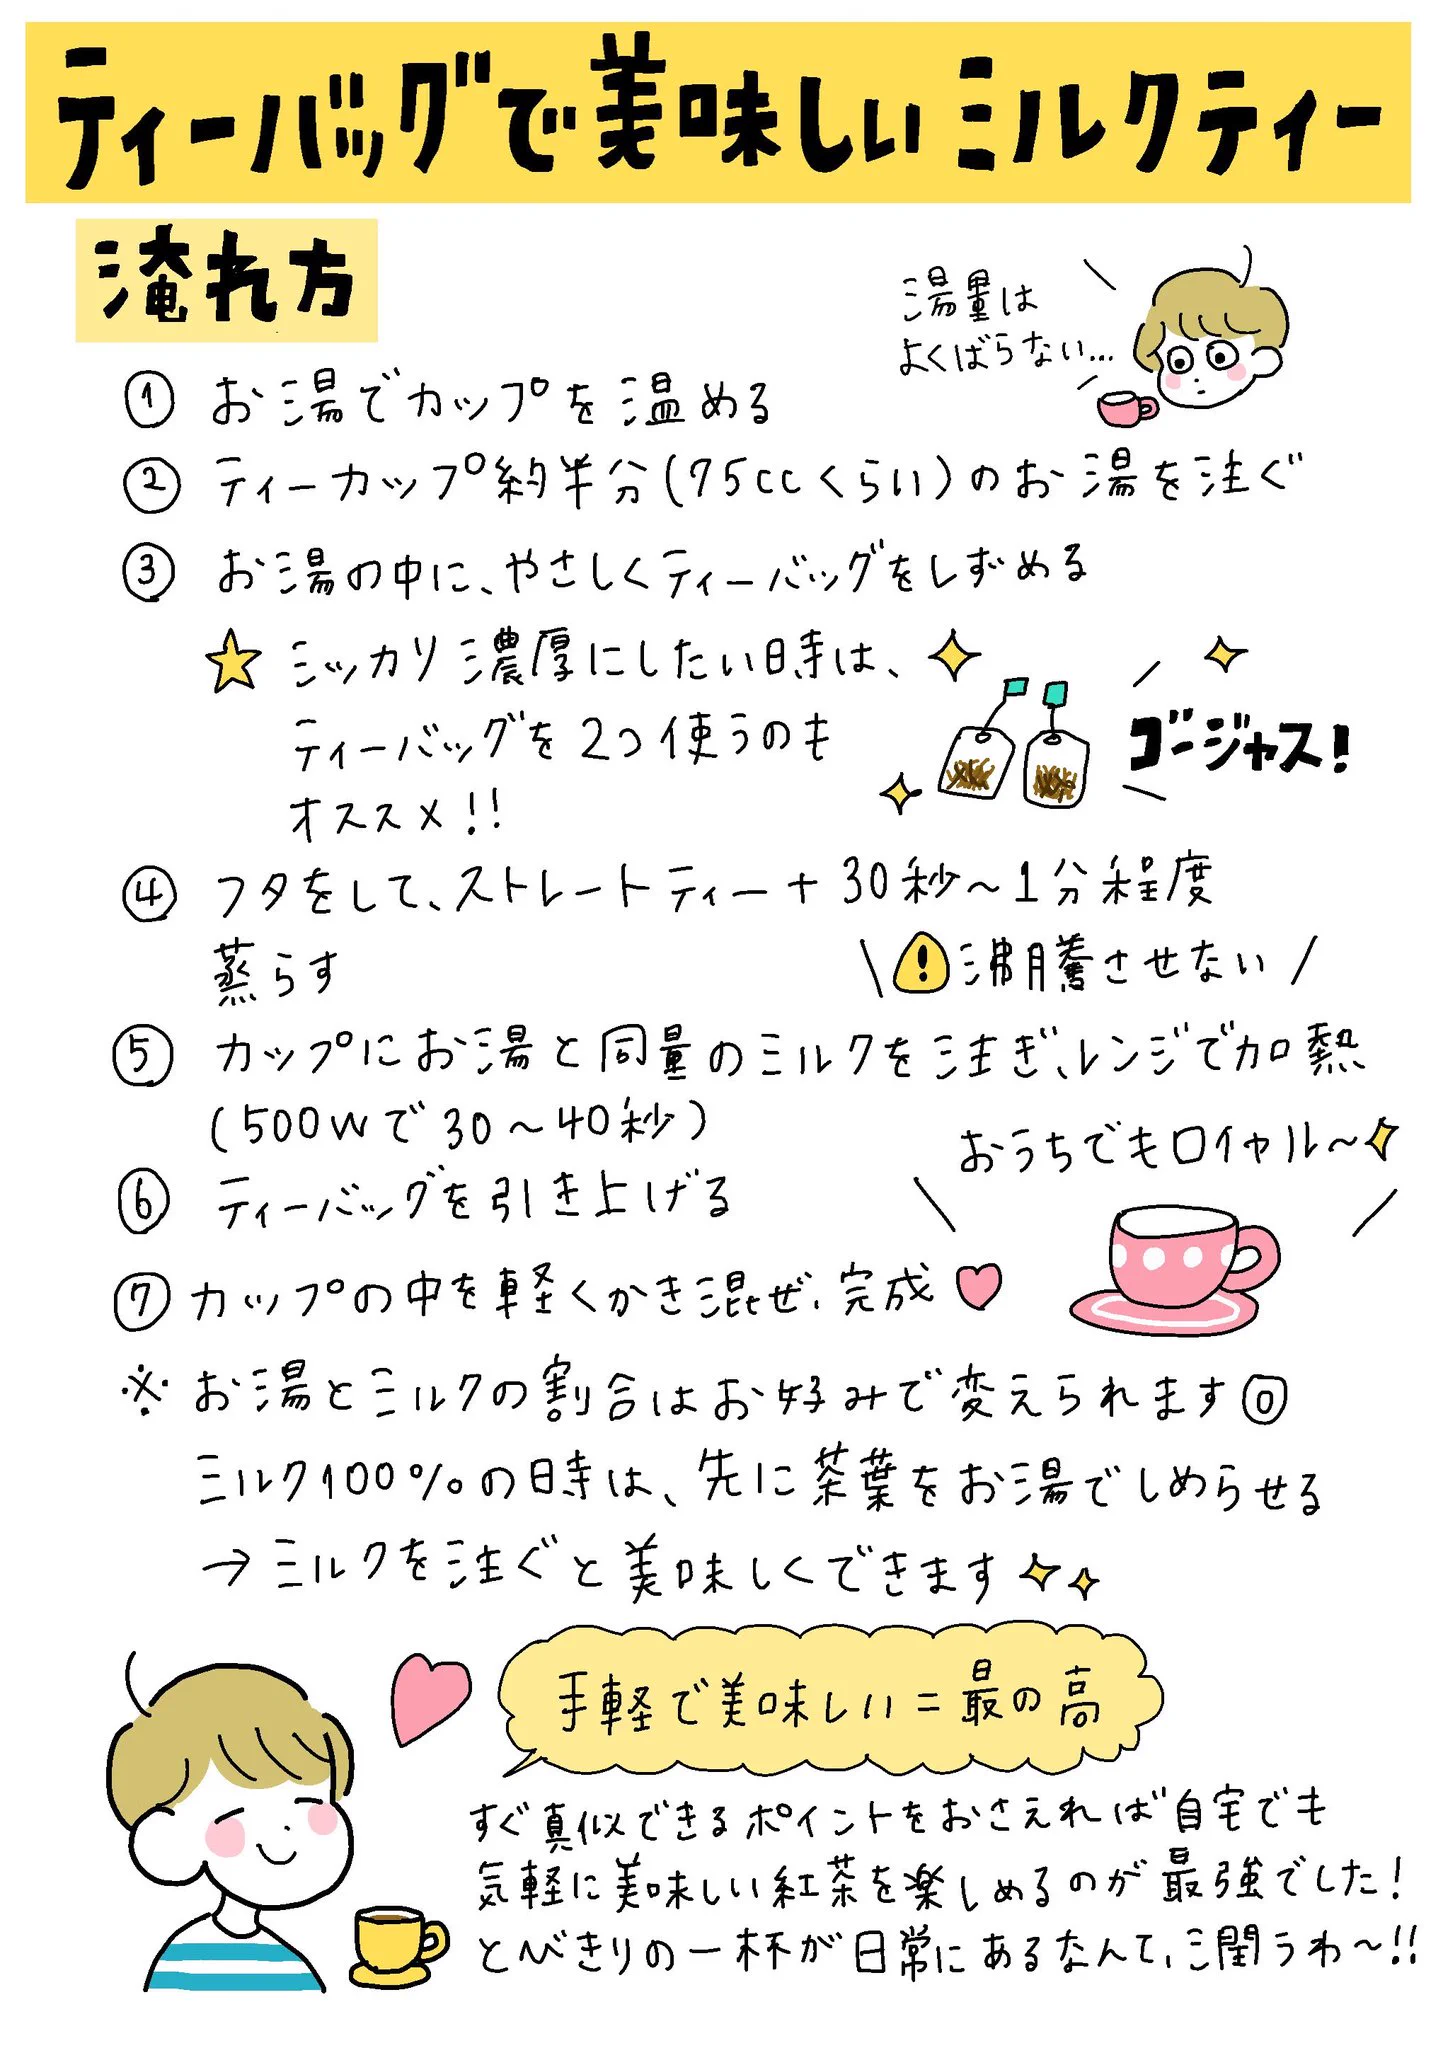 ティーバッグで美味しいミルクティー
淹れ方
湯量は
よくばらない…
① お湯でカップを温める
② ティーカップ約半分(75ccくらい)のお湯を注ぐ
③ お湯の中に、やさしくティーバッグをしずめる
☆ シッカリ濃厚にしたい時は、
ティーバッグを2つ使うのも
オススメ!!
ゴージャス!
④ フタをして、ストレートティー+30秒~1分程度
蒸らす
\ ! 沸騰させない /
⑤ カップにお湯と同量のミルクを注ぎ、レンジで加熱
(500Wで30~40秒)
おうちでもロイヤル~
⑥ ティーバッグを引き上げる
⑦ カップの中を軽くかき混ぜ、完成
※ お湯とミルクの割合はお好みで変えられます◎
ミルク100%の時は、先に茶葉をお湯でしめらせる
→ミルクを注ぐと美味しくできます
手軽で美味しい=最の高
すぐ真似できるポイントをおさえれば自宅でも
気軽に美味しい紅茶を楽しめるのが最強でした!
とびきりの一杯が日常にあるなんて、潤うわ~!!